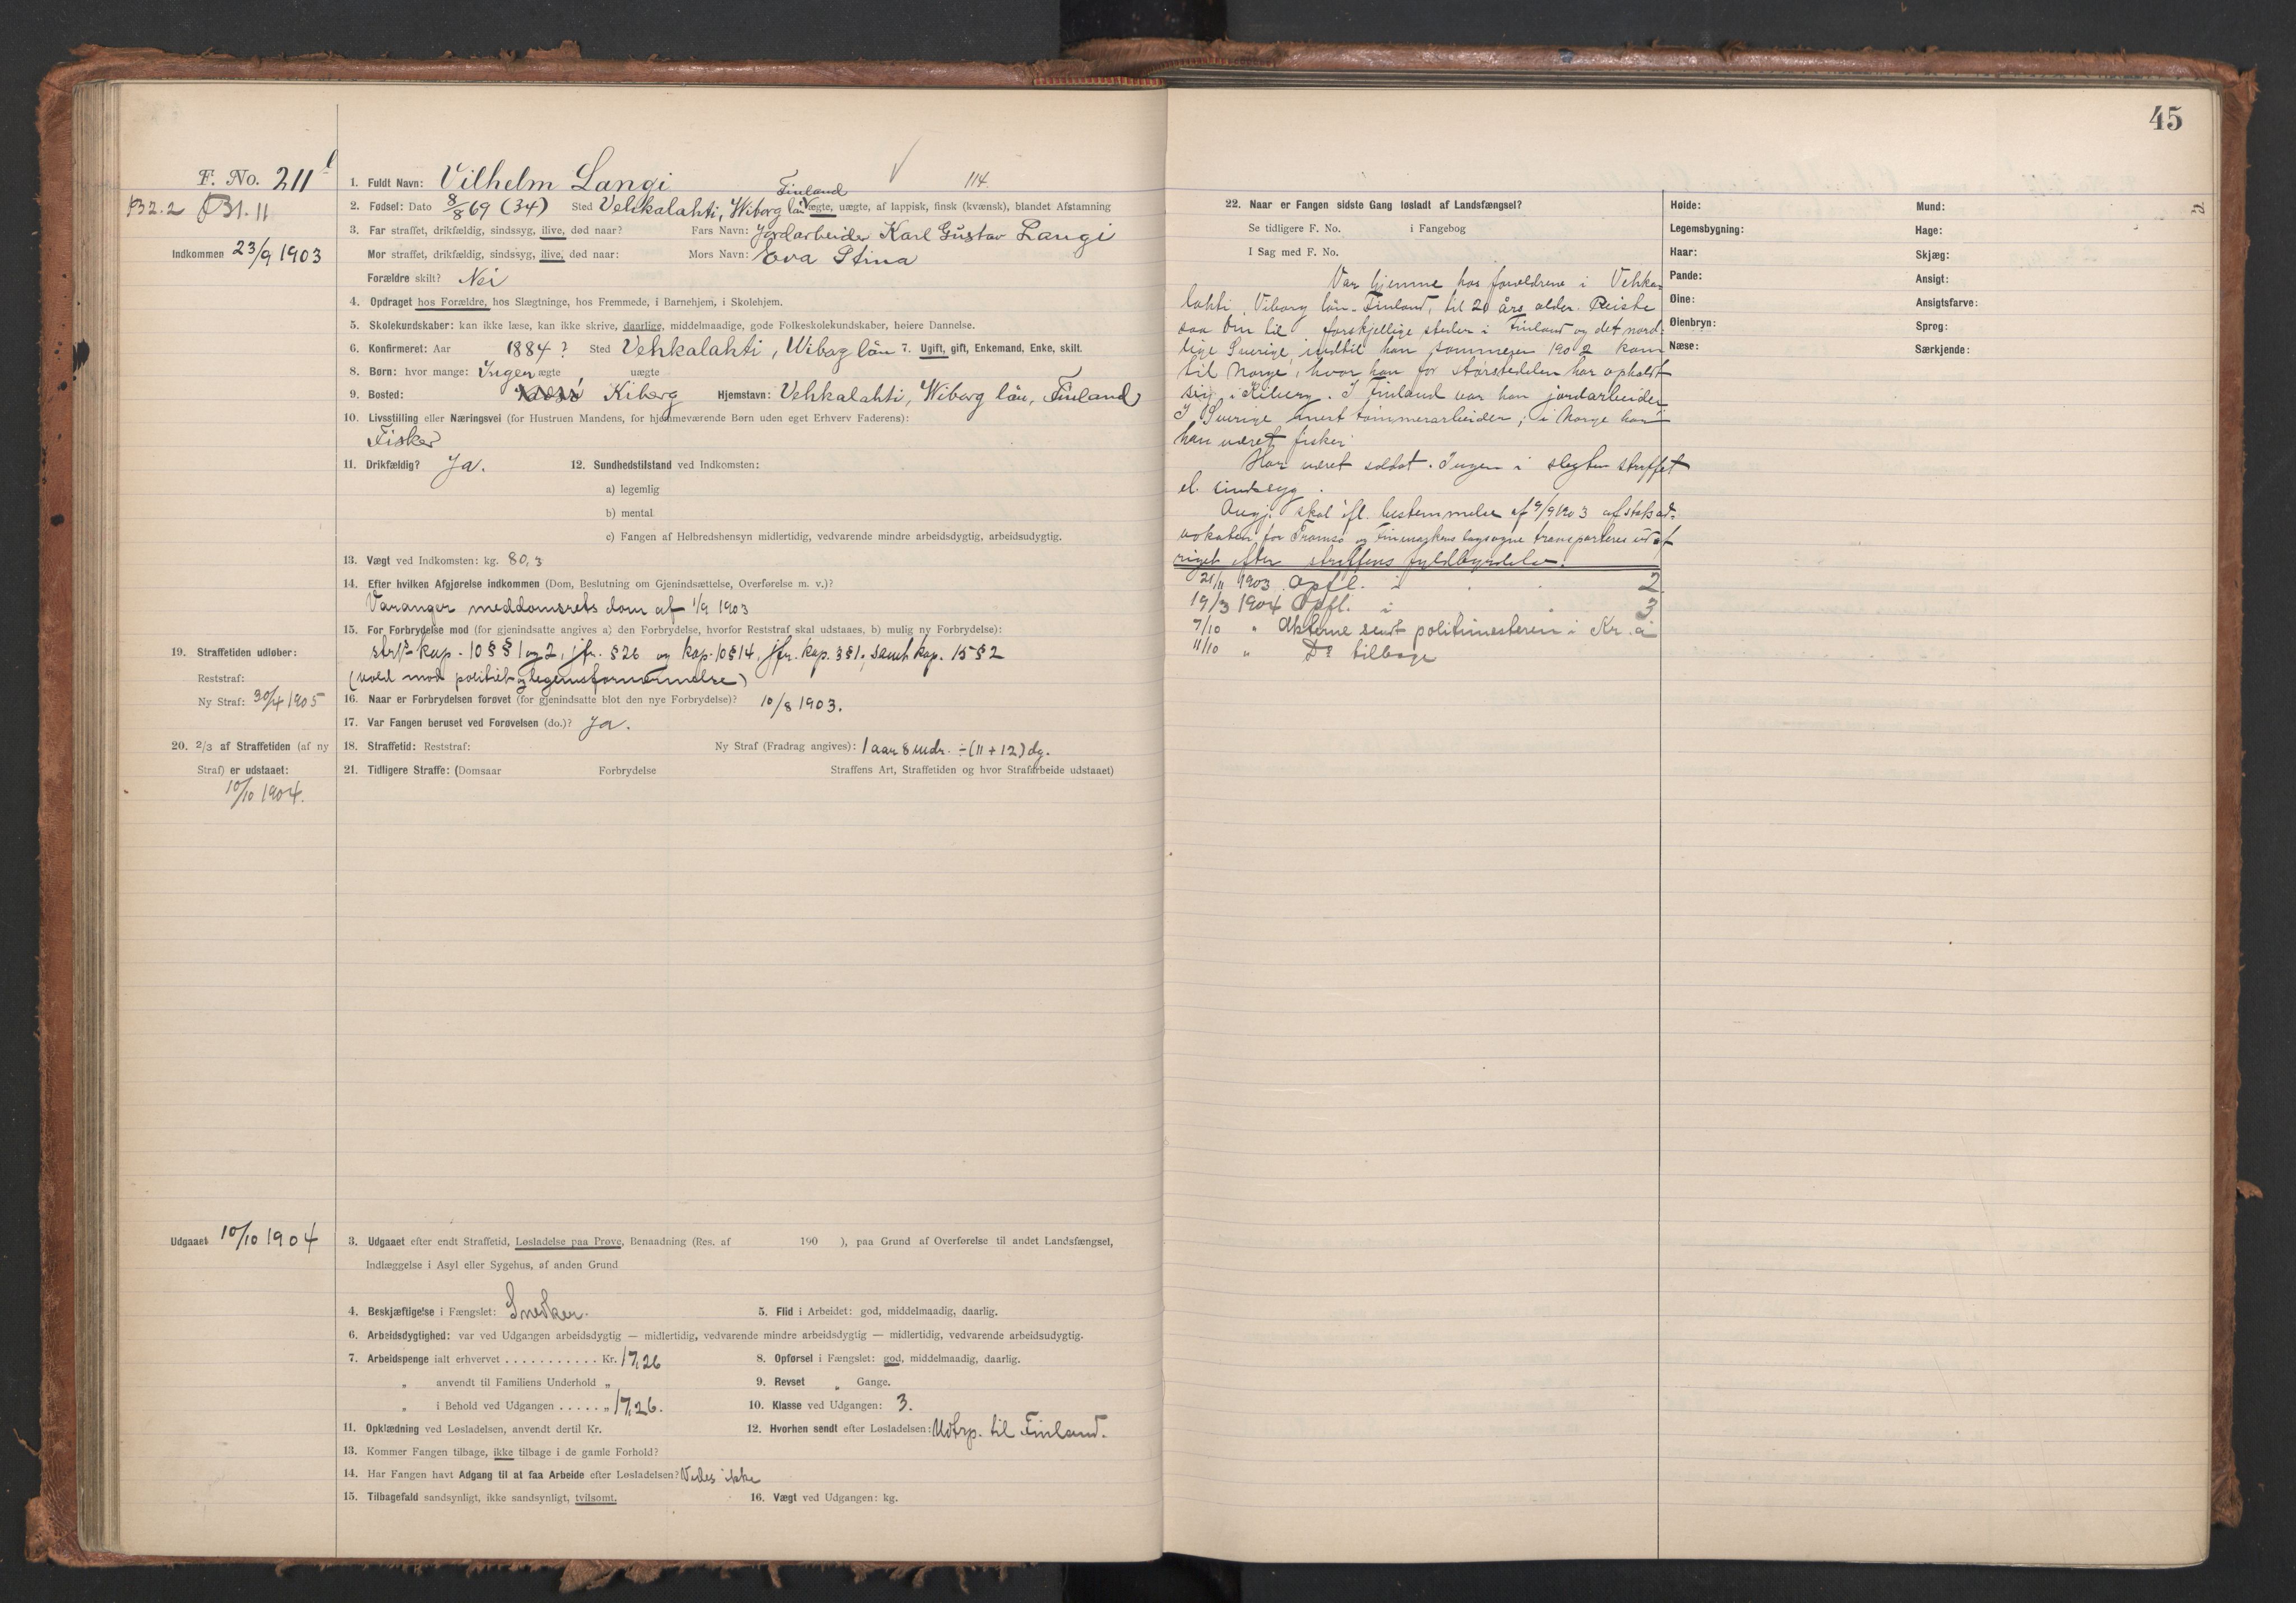 45
F. No. 211
B2.2 B1.11
Indkommen 23/9 1903
114
1. Fuldt Navn: Vilhelm Langi
Finland
2. Fødsel: Dato 8/8 69 (34) Sted Vehkalahti, Wiborg län ægte, uægte, af lappisk, finsk (kvænsk), blandet Afstamning
3. Far straffet, drikfældig, sindssyg, ilive, død naar? Fars Navn: Jordarbeider Karl Gustav Langi
Mor straffet, drikfældig, sindssyg, ilive, død naar: Mors Navn: Eva Stina
Forældre skilt? Nei
4. Opdraget hos Forældre, hos Slægtninge, hos Fremmede, i Barnehjem, i Skolehjem.
5. Skolekundskaber: kan ikke læse, kan ikke skrive, daarlige, middelmaadige, gode Folkeskolekundskaber, høiere Dannelse.
6. Konfirmeret: Aar 1884? Sted Vehkalahti, Wiborg län 7. Ugift, gift, Enkemand, Enke, skilt.
8. Børn: hvor mange: Ingen ægte, uægte
9. Bosted: Kiberg Hjemstavn: Vehkalahti, Wiborg län, Finland
10. Livsstilling eller Næringsvei (for Hustruen Mandens, for hjemmeværende Børn uden eget Erhverv Faderens):
Fisker
11. Drikfældig? Ja. 12. Sundhedstilstand ved Indkomsten:
a) legemlig
b) mental
c) Fangen af Helbredshensyn midlertidig, vedvarende mindre arbeidsdygtig, arbeidsudygtig.
13. Vægt ved Indkomsten: kg. 80,3
14. Efter hvilken Afgjørelse indkommen (Dom, Beslutning om Gjenindsættelse, Overførelse m. v.)?
Varanger meddomsrets dom af 1/9 1903
15. For Forbrydelse mod (for gjenindsatte angives a) den Forbrydelse, hvorfor Reststraf skal udstaaes, b) mulig ny Forbrydelse):
strfl. kap. 10 §§ 1 og 2, jfr. § 26 og kap. 10 § 14, jfr. kap. 3 § 1. samt kap. 15 § 2
(vold mod politiet og legemsfornærmelse)
19. Straffetiden udløber:
Reststraf:
Ny Straf: 30/4 1905
16. Naar er Forbrydelsen forøvet (for gjenindsatte blot den nye Forbrydelse)? 10/8 1903.
17. Var Fangen beruset ved Forøvelsen (do.)? Ja.
20. 2/3 af Straffetiden (af ny
Straf) er udstaaet:
10/10 1904.
18. Straffetid: Reststraf: Ny Straf (Fradrag angives): 1 aar 8 mdr. ÷ (11 + 12) dg.
21. Tidligere Straffe: (Domsaar Forbrydelse Straffens Art, Straffetiden og hvor Strafarbeide udstaaet)
Udgaaet 10/10 1904
3. Udgaaet efter endt Straffetid, Løsladelse paa Prøve, Benaadning (Res. af 190 ), paa Grund af Overførelse til andet Landsfængsel,
Indlæggelse i Asyl eller Sygehus, af anden Grund
4. Beskjæftigelse i Fængslet: Snedker. 5. Flid i Arbeidet: god, middelmaadig, daarlig.
6. Arbeidsdygtighed: var ved Udgangen arbeidsdygtig — midlertidig, vedvarende mindre arbeidsdygtig — midlertidig, vedvarende arbeidsudygtig.
7. Arbeidspenge ialt erhvervet . . . . . . . . . . . Kr. 17,26 8. Opførsel i Fængslet: god, middelmaadig, daarlig.
„ anvendt til Familiens Underhold „ 9. Revset „ Gange.
„ i Behold ved Udgangen . . . . . „ 17,26. 10. Klasse ved Udgangen: 3.
11. Opklædning ved Løsladelsen, anvendt dertil Kr. 12. Hvorhen sendt efter Løsladelsen: Udtrp. til Finland.
13. Kommer Fangen tilbage, ikke tilbage i de gamle Forhold?
14. Har Fangen havt Adgang til at faa Arbeide efter Løsladelsen? Vides ikke
15. Tilbagefald sandsynligt, ikke sandsynligt, tvilsomt. 16. Vægt ved Udgangen: kg.
22. Naar er Fangen sidste Gang løsladt af Landsfængsel?
Se tidligere F. No. i Fangebog
I Sag med F. No.
Var hjemme hos forældrene i Vehka-
lahti, Viborg län, Finland, til 20 års alder. Reiste
saa om til forskjellige steder i Finland og det nord-
lige Sverige, indtil han sommeren 1902 kom
til Norge, hvor han for størstedelen har opholdt
sig i Kiberg. I Finland var han jordarbeider
I Sverige mest tømmerarbeider; i Norge har
han været fisker.
Har været soldat. Ingen i slegten straffet
el. sindssyg.
Angj. skal ifl. bestemmelse af 9/9 1903 af statsad-
vokaten for Tromsø og Finmarkens lagsogne transporteres ud af
riget efter straffens fuldbyrdelse.
21/11 1903 Opfl. i 2
19/3 1904 Opfl. i 3
7/10 „ Akterne sendt politimesteren i Kr.a
11/10 „ Do tilbage
Høide:
Legemsbygning:
Haar:
Pande:
Øine:
Øienbryn:
Næse:
Mund:
Hage:
Skjæg:
Ansigt:
Ansigtsfarve:
Sprog:
Særkjende: